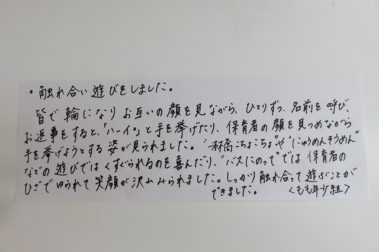 ・触れ合い遊びをしました。
皆で輪になりお互いの顔を見ながら、ひとりずつ、名前を呼び、
お返事をすると、「ハーイ」と手を挙げたり、保育者の顔を見つめながら
手を挙げようとする姿が見られました。"一本橋こちょこちょ"や"にゅうめんそうめん"
などの遊びではくすぐられるのを喜んだり、"バスにのって"では保育者の
ひざでゆられて笑顔が沢山みられました。しっかり触れ合って遊ぶことが
できました。〈もも年少組〉